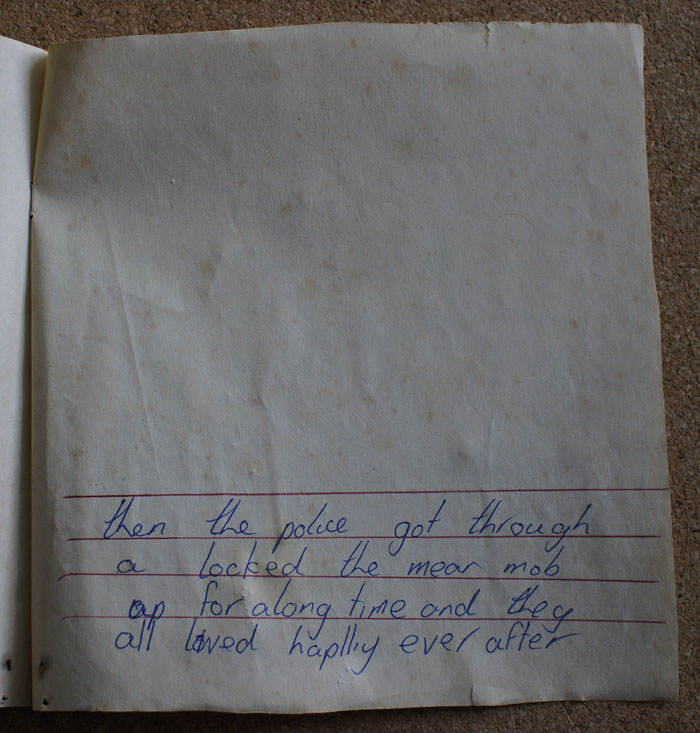 then the police got through
a locked the mean mob
up for along time and they
all lived haplliy ever after